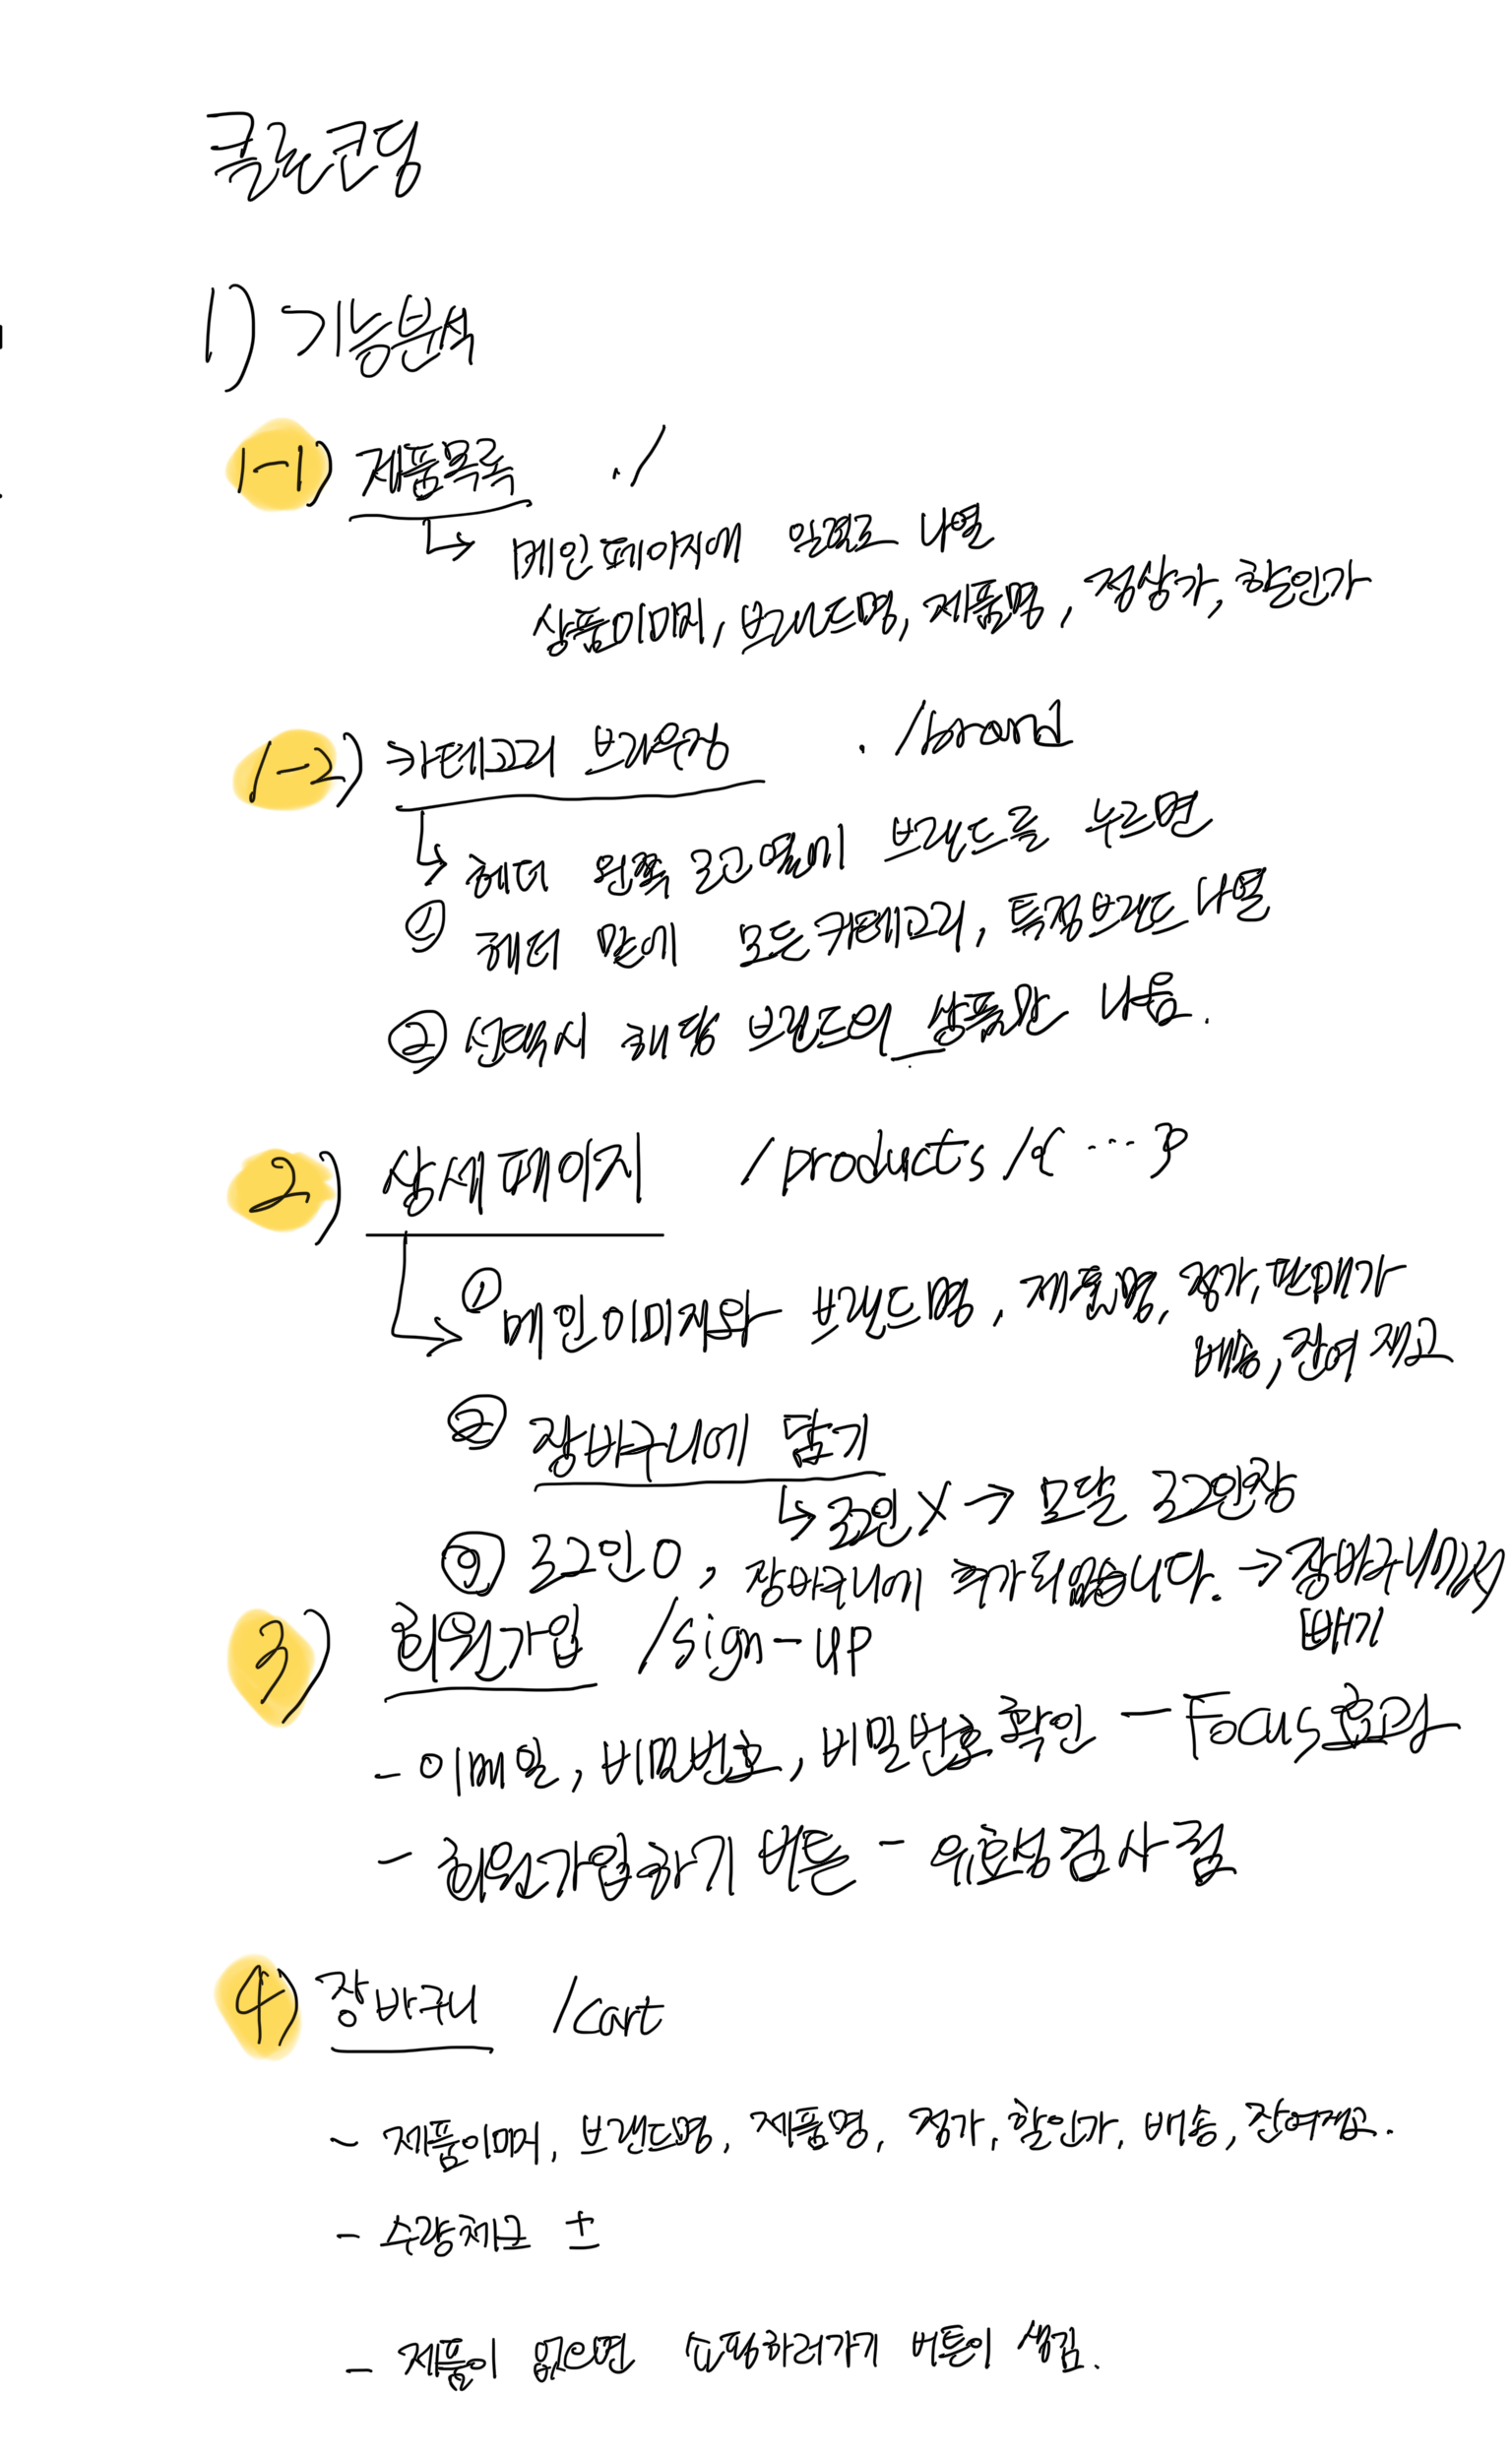 클론코딩
1) 기능분석
1-1) 제품목록 ./
메인페이지에 앞으로 나열
상품이미지, 브랜드명, 제품명, 정상가, 할인가
1-2) 카테고리 브라우징 ./brand
헤더 왼쪽 로고옆에 브랜드를 누르면
① 헤더 밑에 모든카테고리, 특정브랜드 나열
② 선택시 해당 브랜드의 상품만 나옴.
2) 상세페이지 /products/{...}
① 메인이미지와 브랜드명, 제품명 정가, 판매가
배송, 잔여 재고
② 장바구니에 담기
로그인X → 모달 로그인창
로그인O, 장바구니에 추가되었습니다. → 장바구니에서
빼기
3) 회원가입 /sign-up
- 이메일, 비밀번호, 비밀번호확인 - Focus효과
- 회원가입하기 버튼 - 유효성검사됨
4) 장바구니 /cart
- 제품이미지, 브랜드명, 제품명, 정가, 할인가, 배송, 잔여재고.
- 수량체크 ±
- 제품이 없으면 쇼핑하러가기 버튼이 생김.